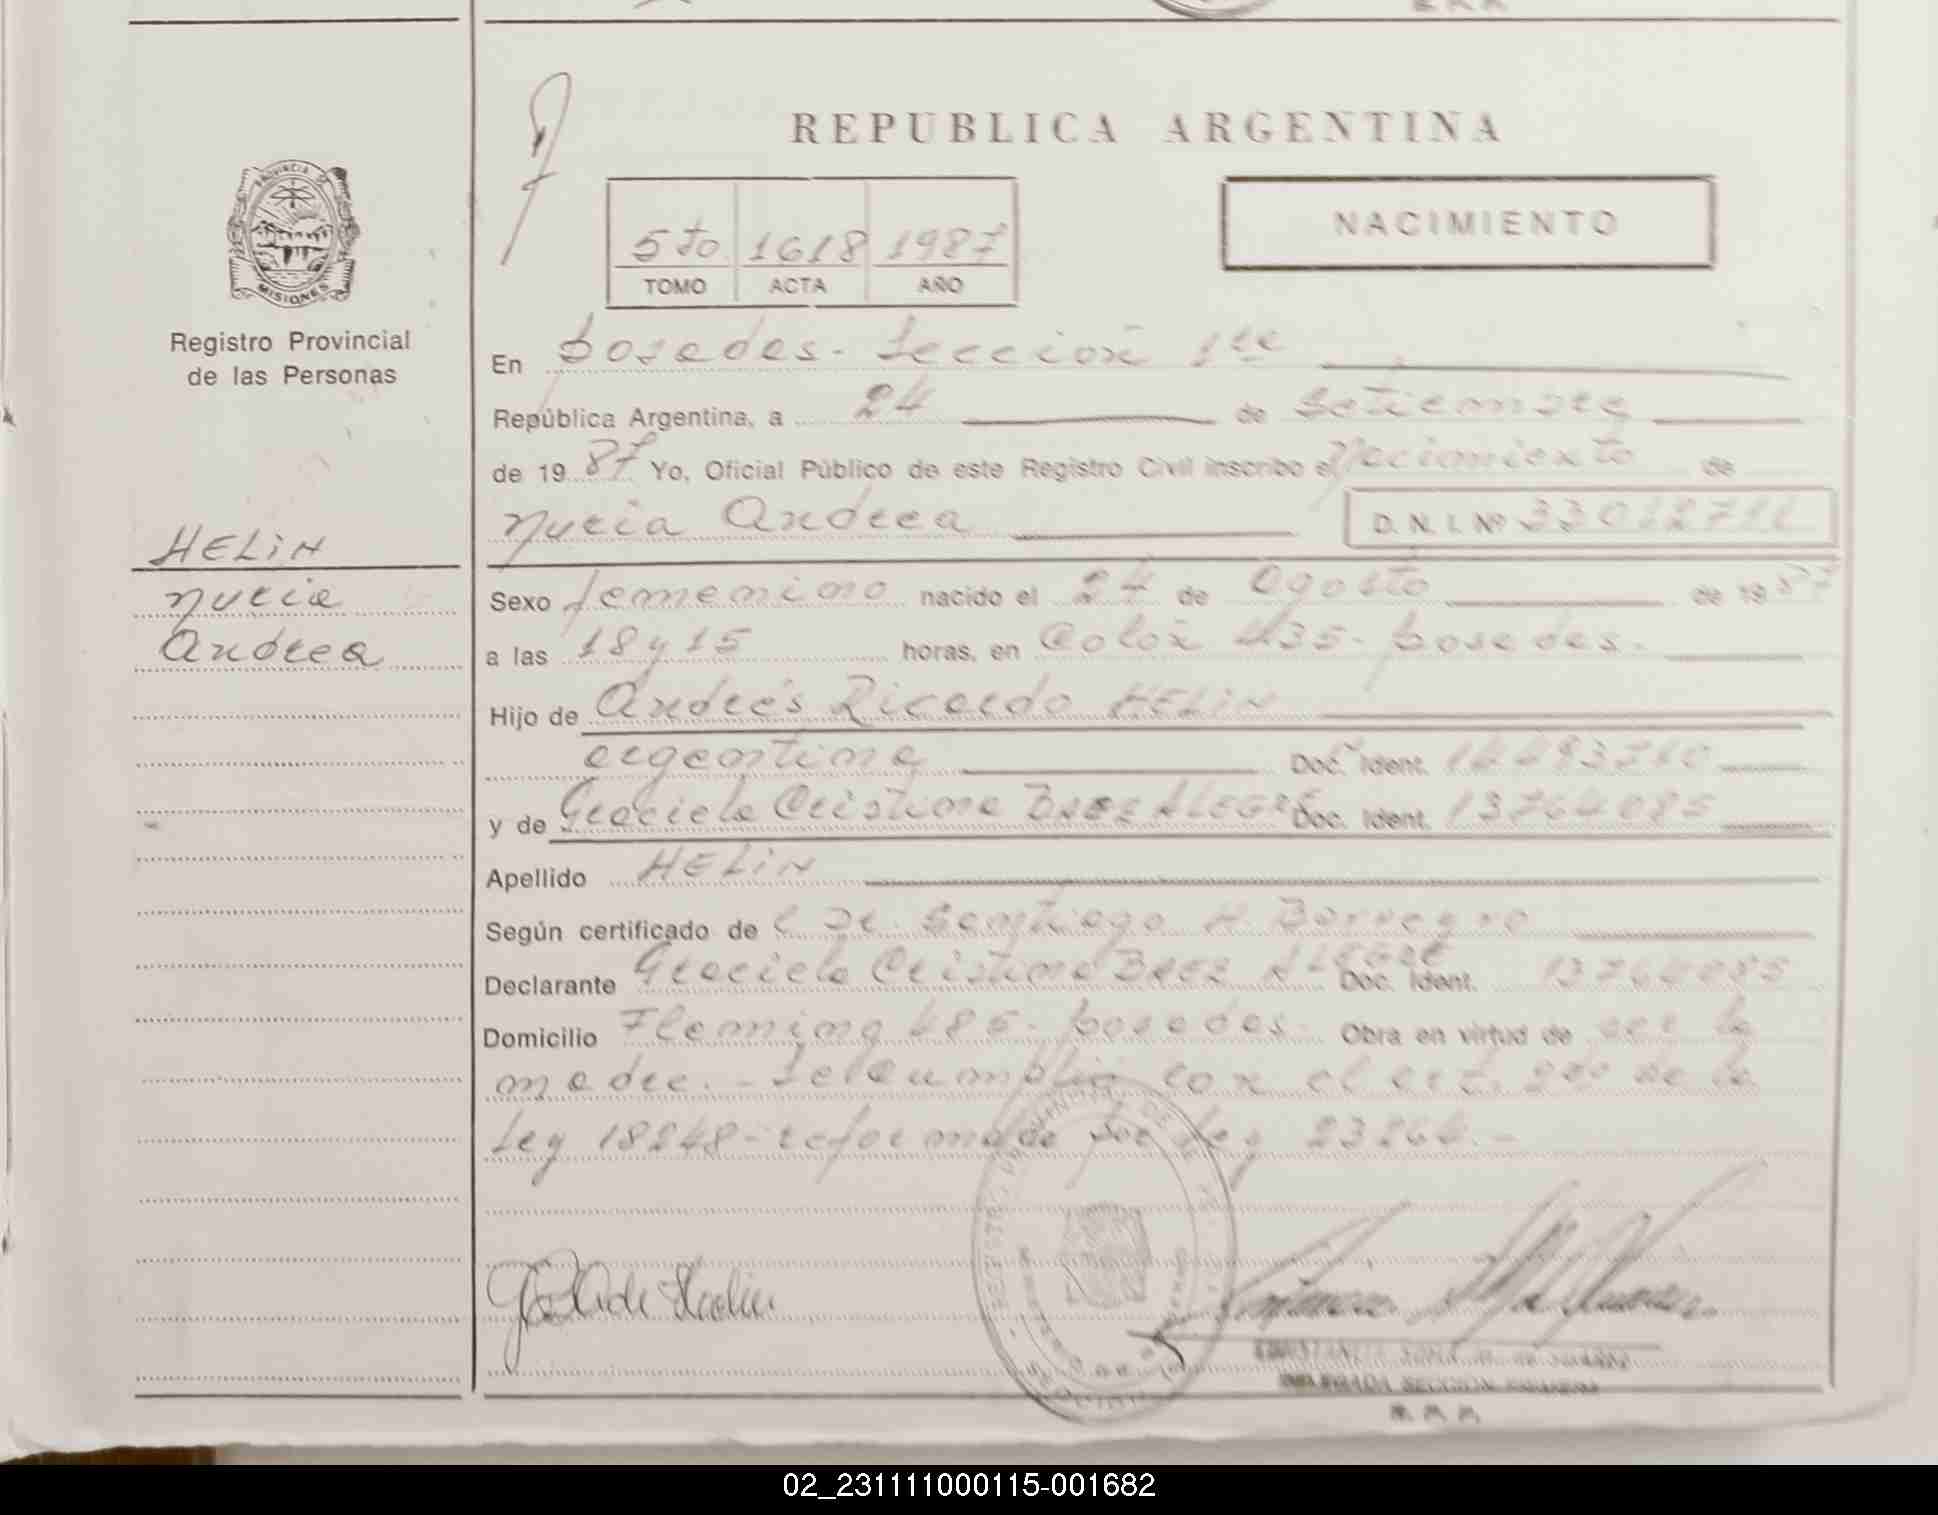 REPUBLICA ARGENTINA
5to 1618 1987
TOMO ACTA AÑO
NACIMIENTO
PROVINCIA DE
MISIONES
Registro Provincial
de las Personas
HELiN
Nuria
Andrea
En Posadas - Sección 1ra
República Argentina, a 24 de Setiembre
de 19 87 Yo, Oficial Público de este Registro Civil inscribo el Nacimiento de
Nuria Andrea D. N. I. Nº
Sexo femenino nacido el 24 de Agosto de 19 87
a las 18 y 15 horas, en Colón 435 - Posadas.
Hijo de Andrés Ricardo HELiN
argentina Doc. Ident.
y de Graciela Cristina BAEZ ALEGRE Doc. Ident. 13764085
Apellido HELiN
Según certificado de l Dr. Santiago H.
Declarante Graciela Cristina BAEZ ALEGRE Doc. Ident. 13764085
Domicilio Fleming 485 - Posadas. Obra en virtud de ser la
madre. - Se la cumplió con el art. 2do de la
Ley 18248 - reformado por Ley 23264. -
DELEGADA SECCION PRIMERA
02_231111000115-001682